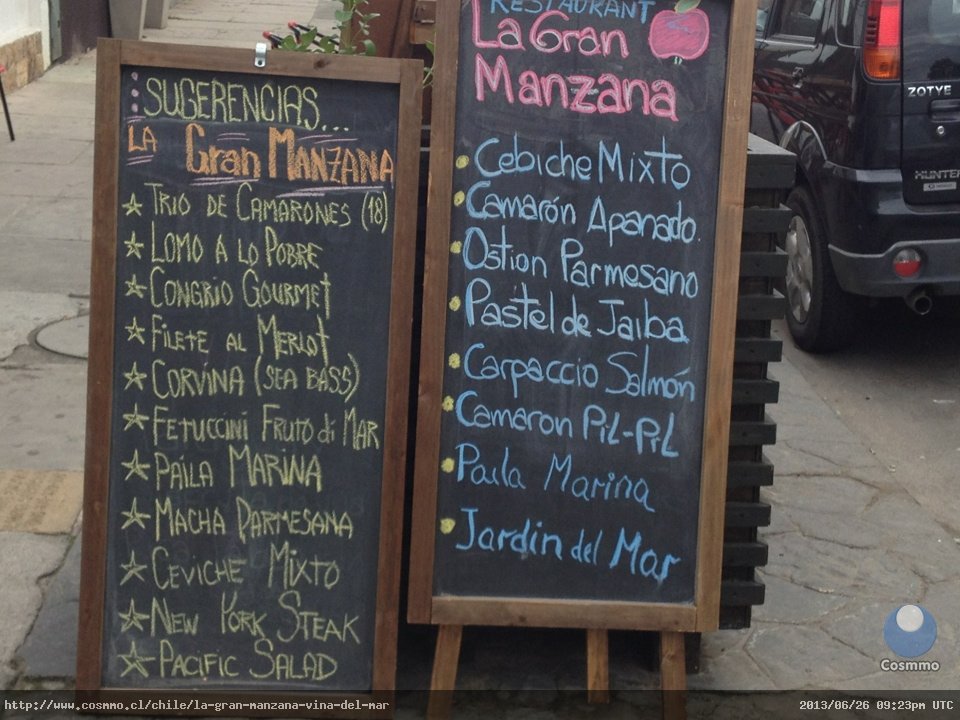 SUGERENCIAS...
LA Gran MANZANA
TRIO DE CAMARONES (18)
LOMO A LO POBRE
CONGRIO GOURMET
FILETE AL MERLOT
CORVINA (SEA BASS)
FETUCCINI FRUTO di MAR
PAILA MARINA
MACHA PARMESANA
CEVICHE MIXTO
NEW YORK STEAK
PACIFIC SALAD
RESTAURANT
La Gran
Manzana
Cebiche Mixto
Camarón Apanado.
Ostion Parmesano
Pastel de Jaiba
Carpaccio Salmón
Camaron PiL-PiL
Paila Marina
Jardin del Mar
ZOTYE
HUNTER
Cosmmo
http://www.cosmmo.cl/chile/la-gran-manzana-vina-del-mar
2013/06/26 09:23pm UTC